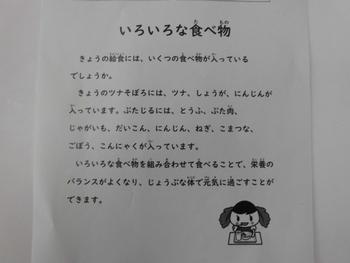 いろいろな食べ物
きょうの給食には、いくつの食べ物が入っている
でしょうか。
きょうのツナそぼろには、ツナ、しょうが、にんじんが
入っています。ぶたじるには、とうふ、ぶた肉、
じゃがいも、だいこん、にんじん、ねぎ、こまつな、
ごぼう、こんにゃくが入っています。
いろいろな食べ物を組み合わせて食べることで、栄養の
バランスがよくなり、じょうぶな体で元気に過ごすことが
できます。